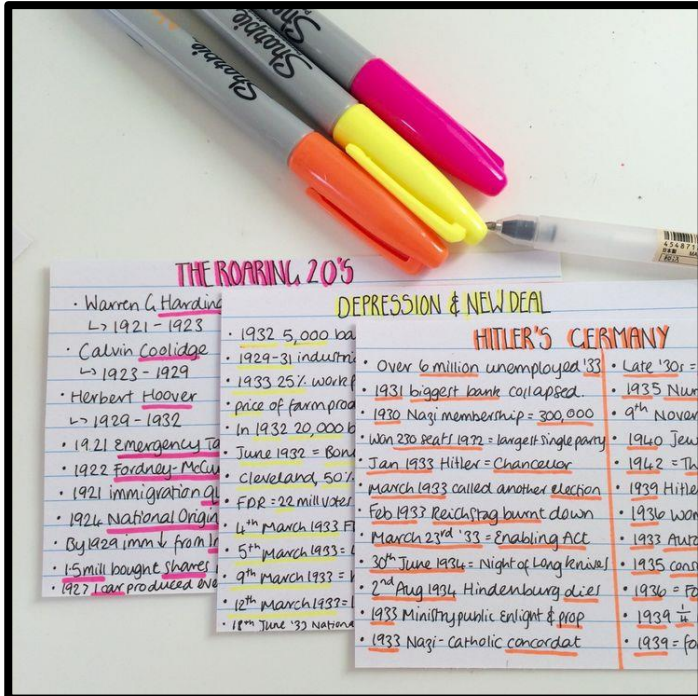 Sharpie
Sharpie
Sharpie
454871
THE ROARING 20'S
• Warren G Harding
↳ 1921-1923
• Calvin Coolidge
↳ 1923-1929
• Herbert Hoover
↳ 1929-1932
• 1921 Emergency Ta
• 1922 Fordney-McCu
• 1921 immigration qu
• 1924 National Origin
• By 1929 imm ↓ from
• 1.5mill bought shares
• 1927 1 car produced eve
DEPRESSION & NEW DEAL
• 1932 5,000 ba
• 1929-31 industri
• 1933 25% workf
• price of farm prod
• In 1932 20,000 b
• June 1932 = Bon
• Cleveland, 50%
• FDR = 22 mill votes
• 4th March 1933 F
• 5th March 1933 =
• 9th March 1933 =
• 12th March 1933 =
• 18th June '33 Nationa
HITLER'S GERMANY
• Over 6 million unemployed '33
• 1931 biggest bank collapsed.
• 1930 Nazi membership = 300,000
• Won 230 seats 1932 = largest single party
• Jan 1933 Hitler = Chancellor
• March 1933 called another election
• Feb 1933 Reichstag burnt down
• March 23rd '33 = Enabling Act
• 30th June 1934 = Night of Long knives
• 2nd Aug 1934 Hindenburg dies
• 1933 Ministry public Enlight & prop
• 1933 Nazi-Catholic concordat
• Late '30s =
• 1935 Nur
• 9th Nove
• 1940 Jew
• 1942 = Th
• 1939 Hitle
• 1936 Wo
• 1933 Auto
• 1935 cons
• 1936 = Fo
• 1939 1/4
• 1939 = fo